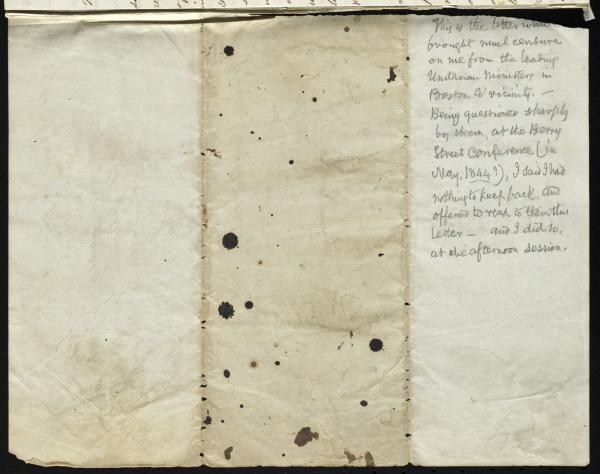 This is the letter which
brought much censure
on me from the leading
Unitarian Ministers in
Boston & vicinity. —
Being questioned sharply
by them, at the Berry
Street Conference (in
May, 1844?), I said I had
nothing to keep back, and
offered to read to them this
letter — and I did so,
at the afternoon session.